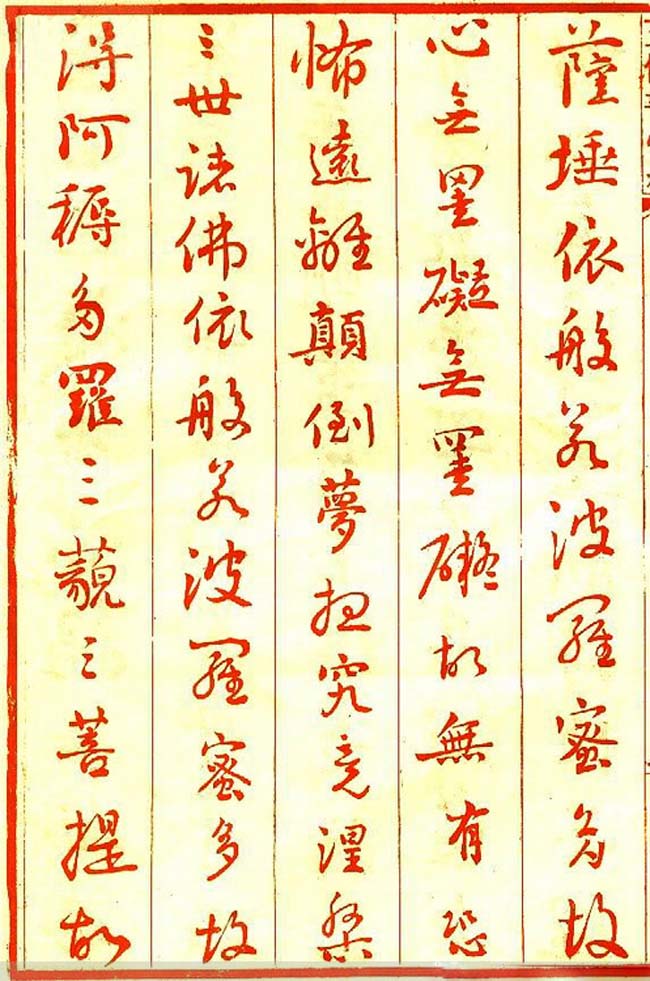 薩埵依般若波羅蜜多故
心無罣礙無罣礙故無有恐
怖遠離顛倒夢想究竟涅槃
三世諸佛依般若波羅蜜多故
得阿耨多羅三藐三菩提故